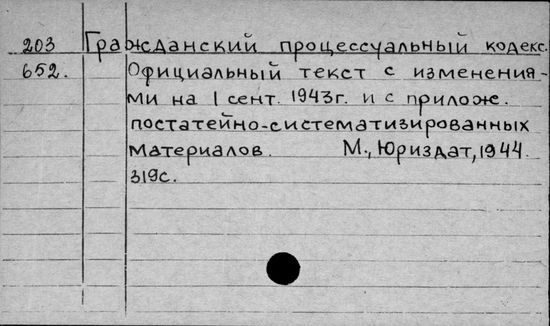 203 Гражданский процессуальный кодекс.
652. Официальный текст с изменения-
ми на 1 сент. 1943г. и с прилож.
постатейно-систематизированных
материалов. М., Юриздат, 1944.
319с.